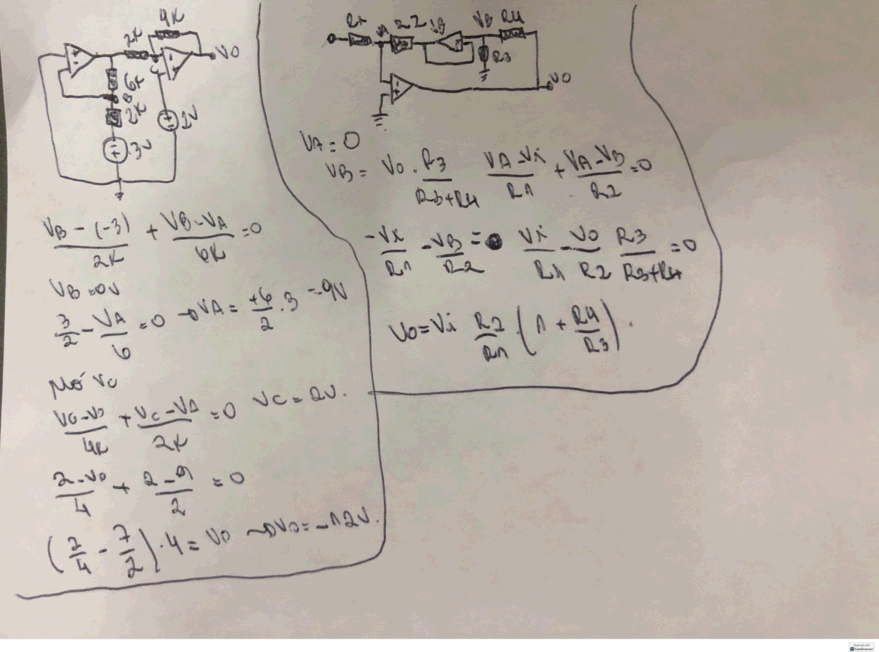 4K
2K
VO
6K
B
2K
3V
2V
VB - (-3) / 2K + VB - VA / 6K = 0
VB = 0V
3/2 - VA/6 = 0 → VA = +6/2 . 3 = 9V
VC - VO / 4K + VC - VA / 2K = 0 VC = 2V.
2 - VO / 4 + 2 - 9 / 2 = 0
(2/4 - 7/2) . 4 = VO → VO = -12V.
VB
VB
R4
R3
VO
VA = 0
VB = VO . R3 / R3+R4 VA - Vi / R1 + VA - VB / R2 = 0
-Vi / R1 - VB / R2 = 0 Vi / R1 - VO / R2 R3 / R3+R4 = 0
VO = Vi R2 / R1 . (1 + R4 / R3) .
CamScanner